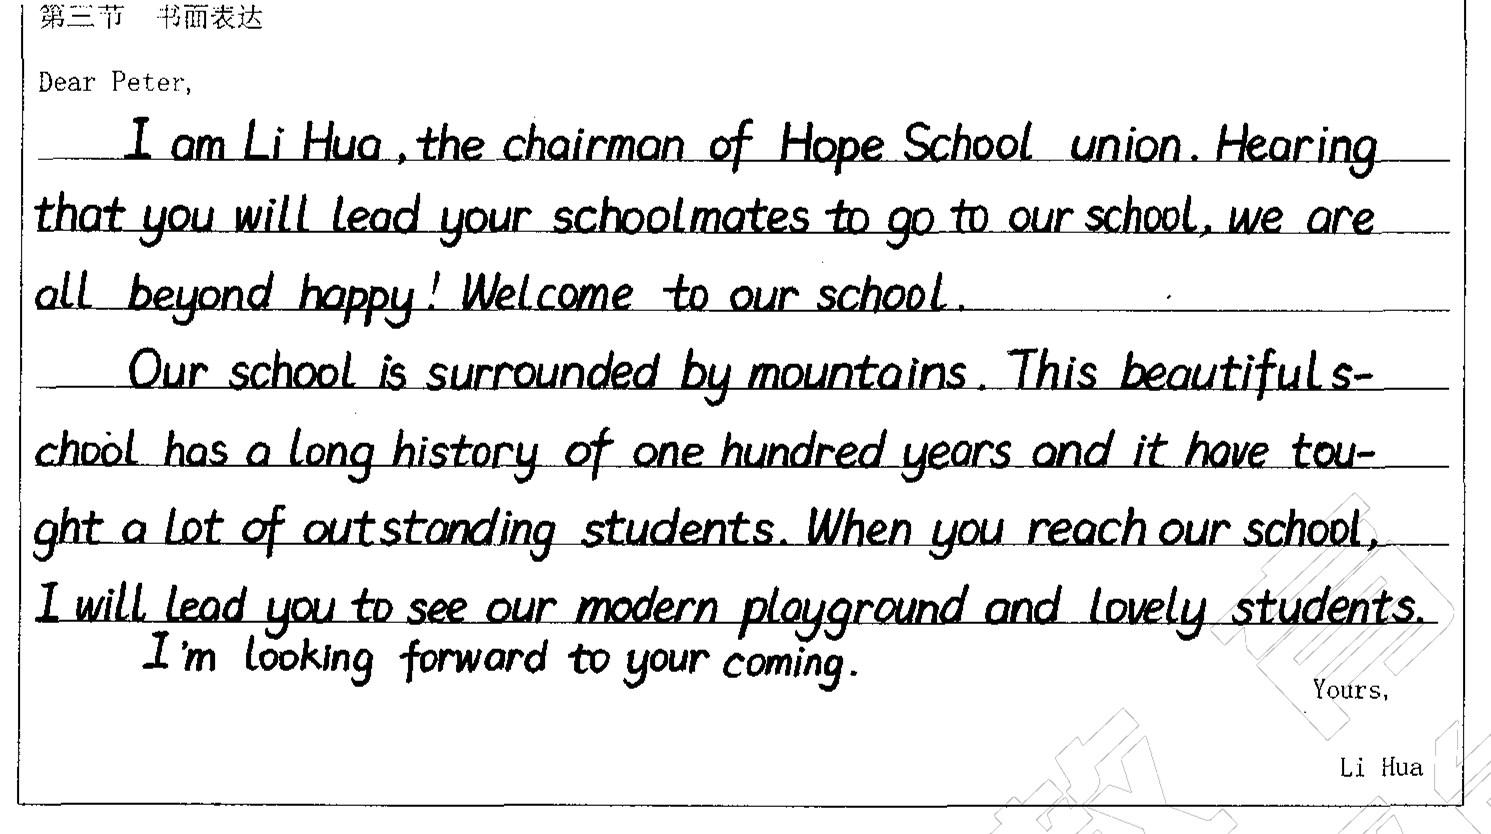 第三节 书面表达
Dear Peter,
I am Li Hua, the chairman of Hope School union. Hearing
that you will lead your schoolmates to go to our school, we are
all beyond happy! Welcome to our school.
Our school is surrounded by mountains. This beautiful s-
chool has a long history of one hundred years and it have tou-
ght a lot of outstanding students. When you reach our school,
I will lead you to see our modern playground and lovely students.
I'm looking forward to your coming.
Yours,
Li Hua